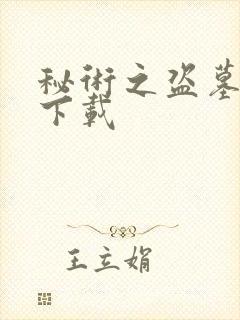 秘術之盗墓
下載
王立娟